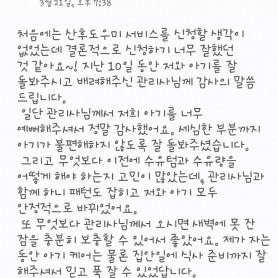 3월 22일, 오후 7:38
처음에는 산후도우미 서비스를 신청할 생각이
없었는데 결론적으로 신청하기 너무 잘했던
것 같아요~! 지난 10일 동안 저와 아기를 잘
돌봐주시고 배려해주신 관리사님께 감사의 말씀
드립니다.
일단 관리사님께서 저희 아기를 너무
예뻐해주셔서 정말 감사했어요. 세심한 부분까지
아기가 불편해하지 않도록 잘 돌봐주셨습니다.
그리고 무엇보다 이전에 수유텀과 수유량을
어떻게 해야 하는지 고민이 많았는데, 관리사님과
함께 하니 패턴도 잡히고 저와 아기 모두
안정적으로 바뀌었어요.
또 무엇보다 관리사님께서 오시면 새벽에 못 잔
잠을 충분히 보충할 수 있어서 좋았어요. 제가 자는
동안 아기 케어는 물론 집안일에 식사 준비까지 잘
해주셔서 믿고 푹 잘 수 있었답니다.